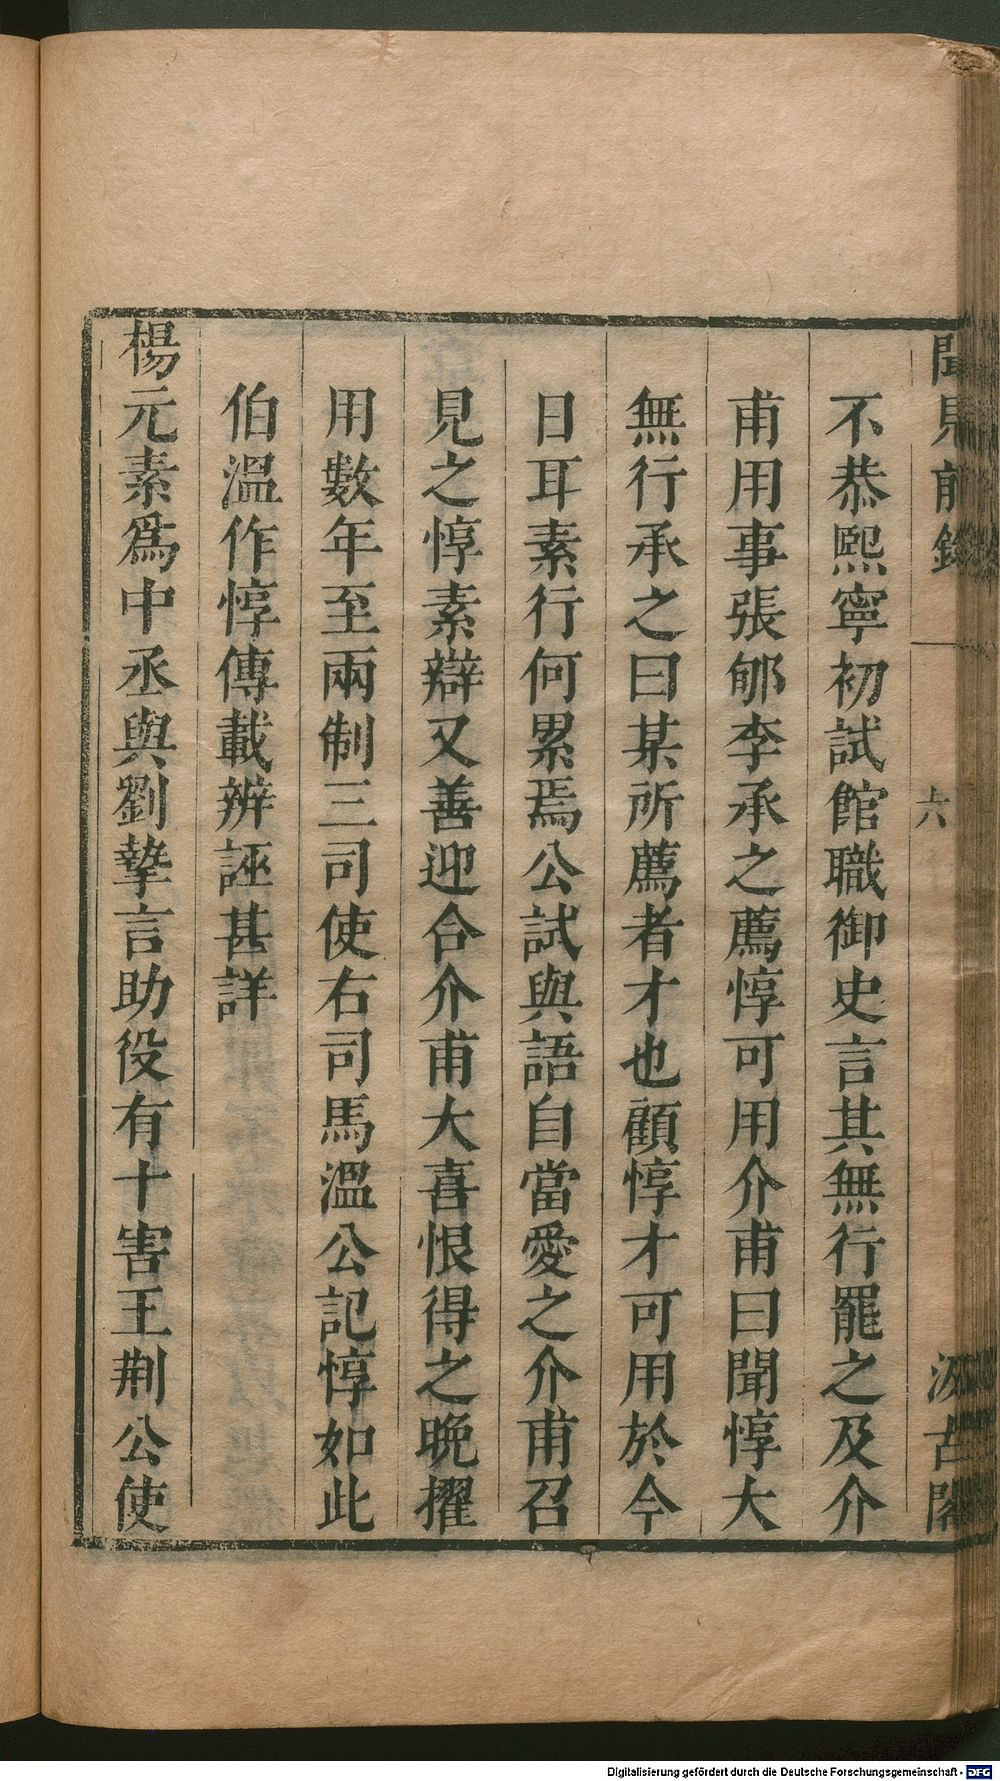 聞見前錄
六
汲古閣
不恭熙寧初試館職御史言其無行罷之及介
甫用事張郇李承之薦惇可用介甫曰聞惇大
無行承之曰某所薦者才也顧惇才可用於今
日耳素行何累焉公試與語自當愛之介甫召
見之惇素辯又善迎合介甫大喜恨得之晚擢
用數年至兩制三司使右司馬溫公記惇如此
伯溫作惇傳載辨誣甚詳
楊元素爲中丞與劉摯言助役有十害王荆公使
Digitalisierung gefördert durch die Deutsche Forschungsgemeinschaft - DFG